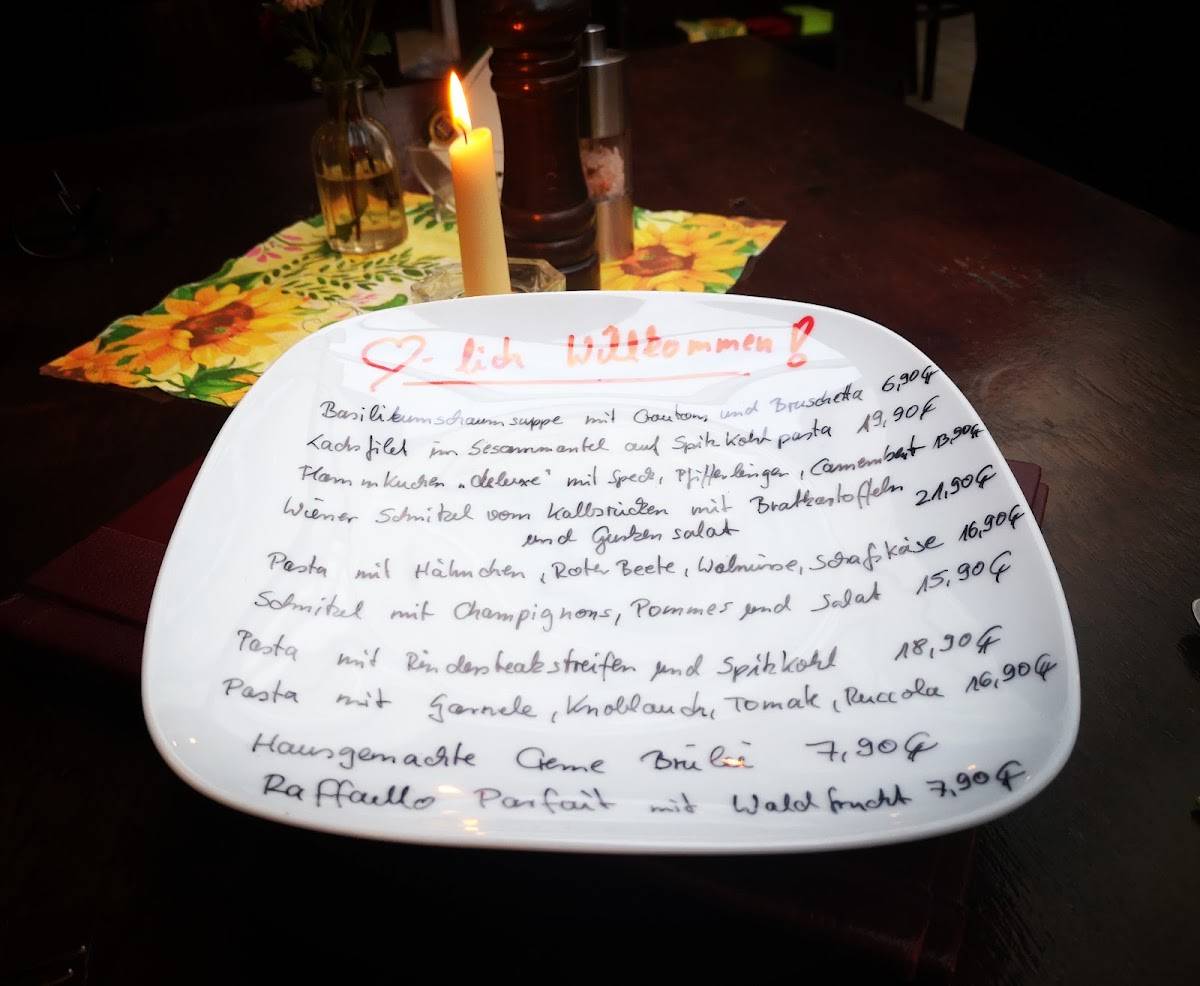 ♡-lich Willkommen!
Basilikumschaumsuppe mit Croutons und Bruschetta 6,90 €
Lachsfilet im Sesammantel auf Spitzkohlpasta 19,90 €
Flammkuchen „deluxe" mit Speck, Pfifferlingen, Camembert 13,90 €
Wiener Schnitzel vom Kalbsrücken mit Bratkartoffeln 21,90 €
und Gurkensalat
Pasta mit Hähnchen, Roter Beete, Walnüsse, Schafskäse 16,90 €
Schnitzel mit Champignons, Pommes und Salat 15,90 €
Pasta mit Rindersteakstreifen und Spitzkohl 18,90 €
Pasta mit Garnele, Knoblauch, Tomate, Ruccola 16,90 €
Hausgemachte Creme Brûlée 7,90 €
Raffaello Parfait mit Waldfrucht 7,90 €